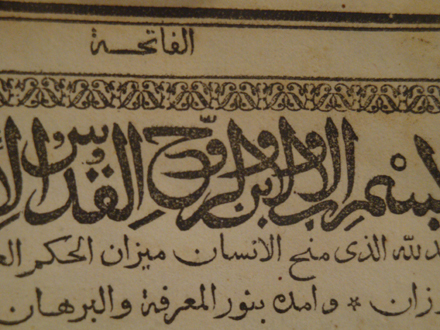 الفاتحة
بسم الاب والابن والروح القدس
لله الذى منح الانسان ميزان الحكم
وامدّه بنور المعرفة والبرهان